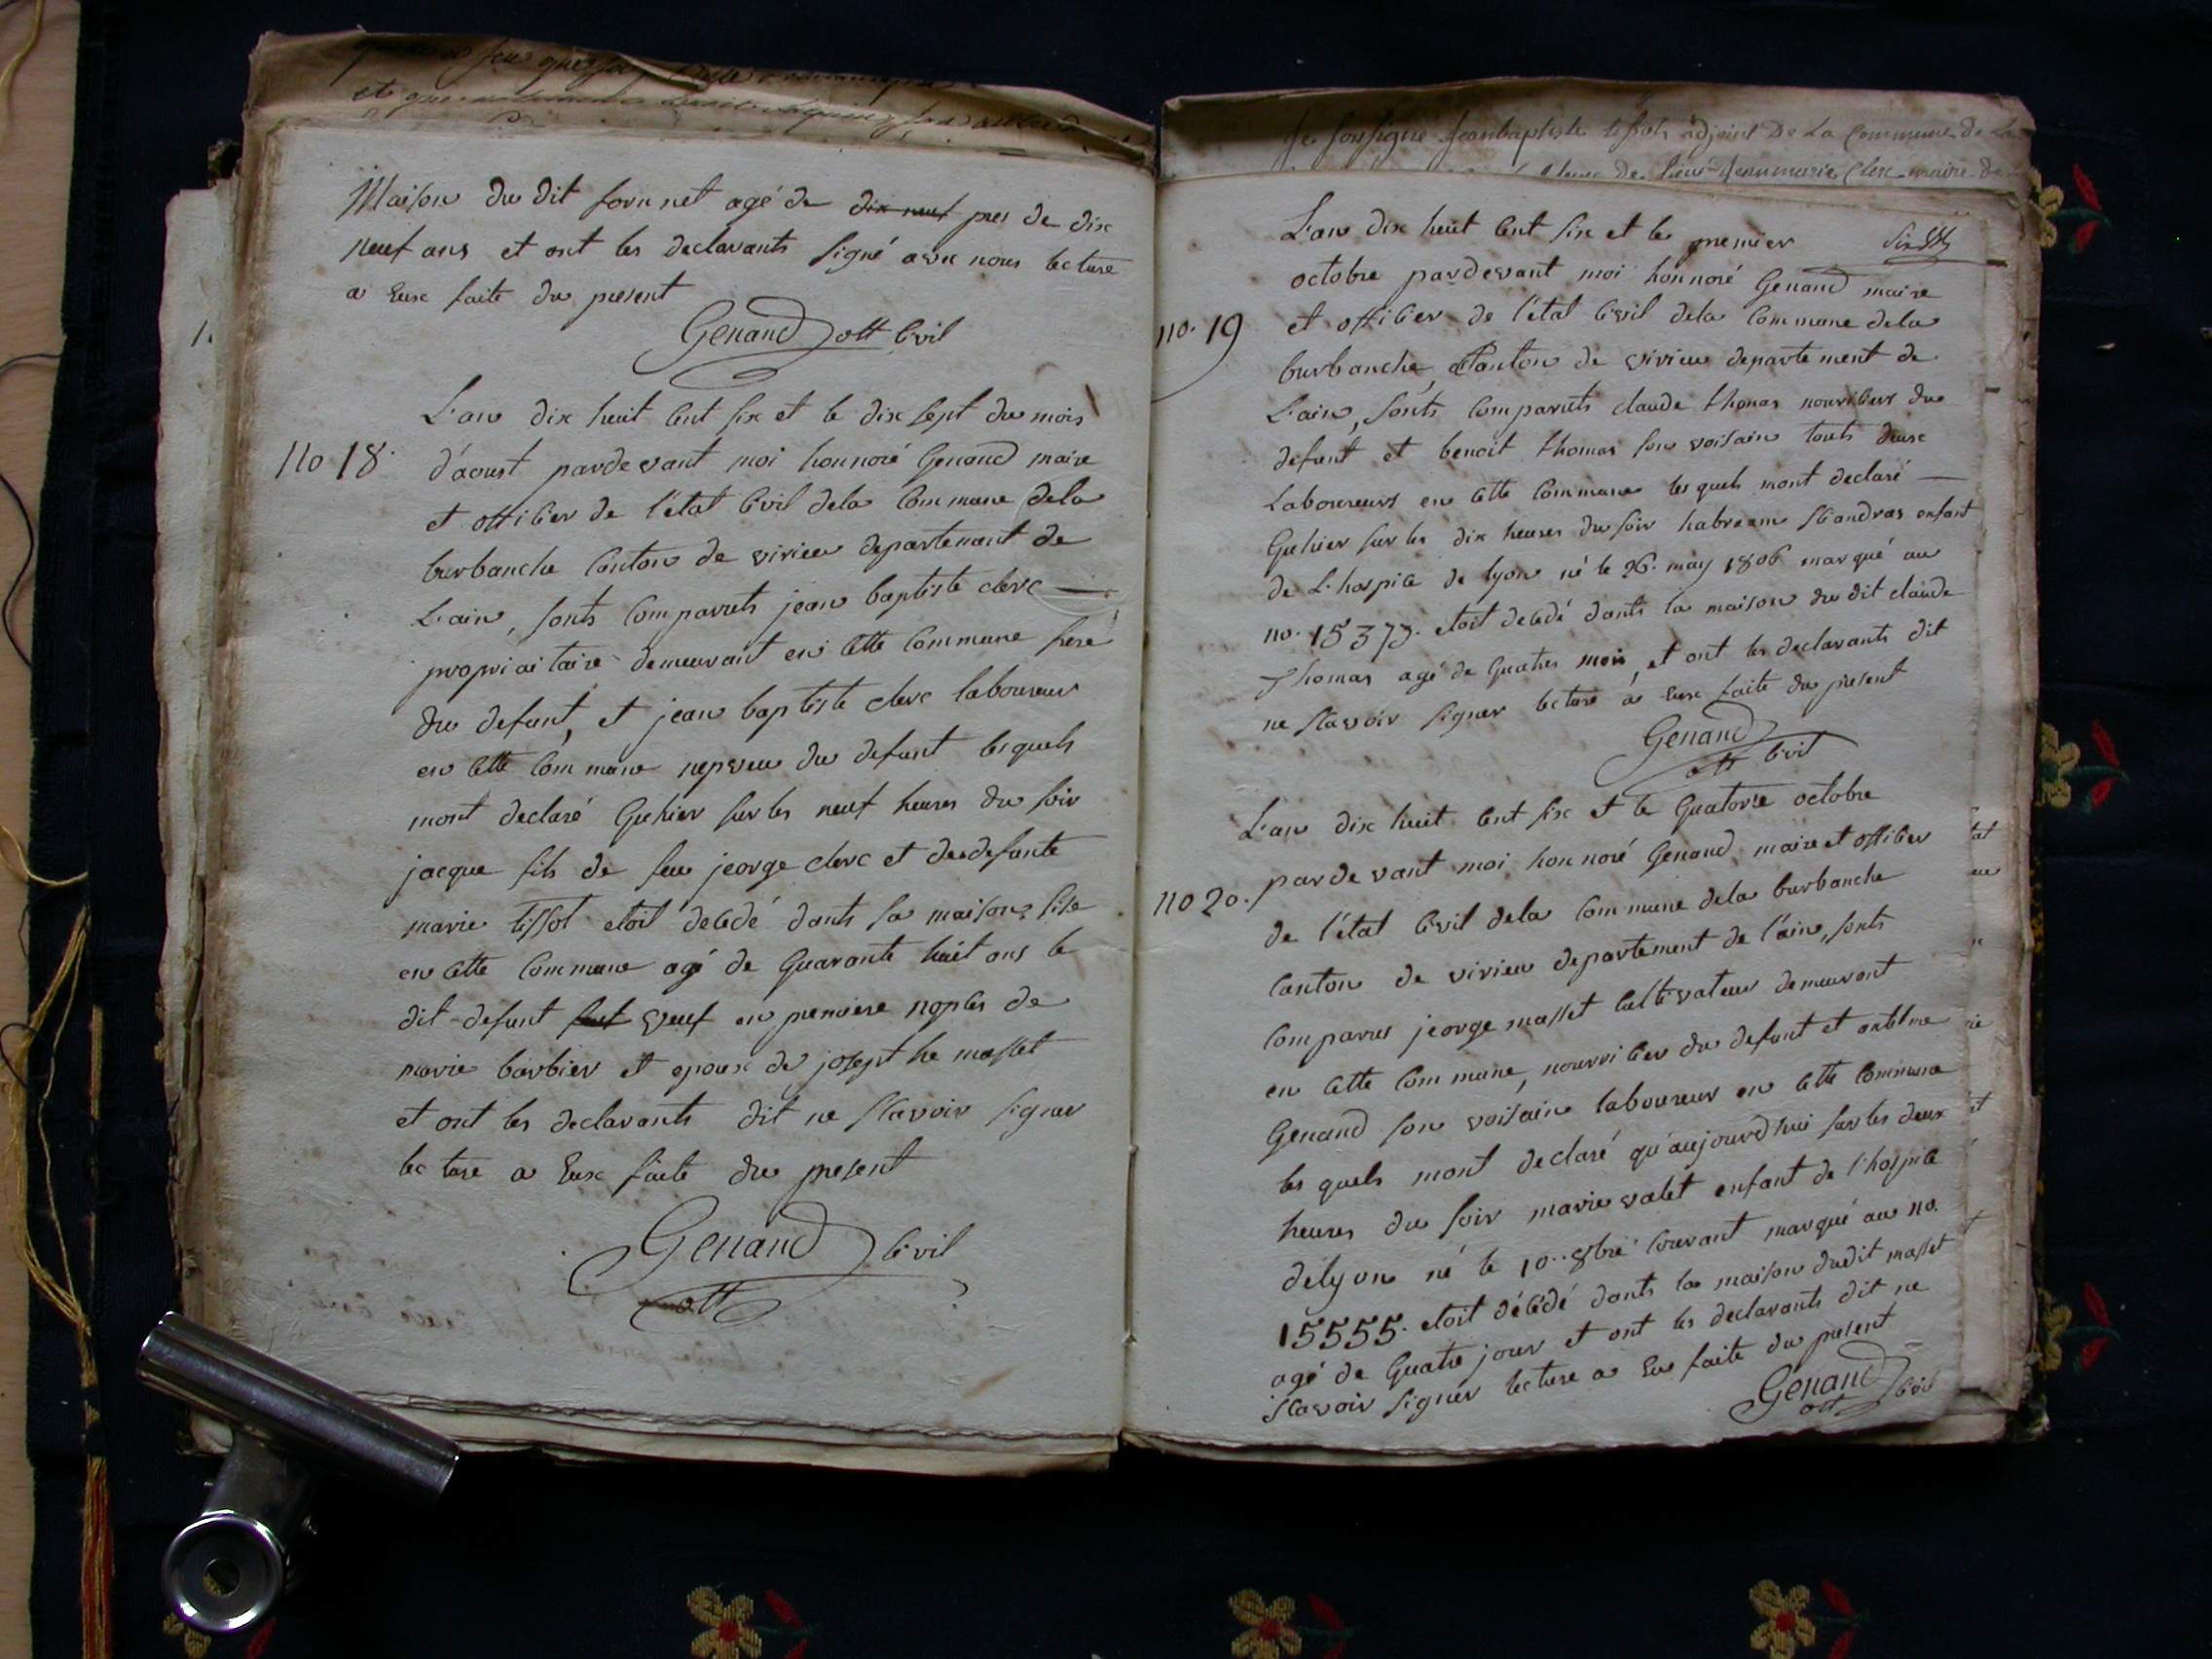 Maison du dit fornnet agé de dix neuf pres de dix
neuf ans et ont les declarants signé avec nous lecture
a Eux faite du present
Genand off Civil
no 18.
L'an dix huit Cent six et le dix sept du mois
d'aoust pardevant moi honnoré Genand maire
et officier de l'état Civil dela Commune dela
burbanche Canton de virieu departement de
L'ain, sonts Comparuts jean baptiste clerc
propriaitaire demeurant en Cette Commune frere
du defunt, et jean baptiste clerc laboureur
en Cette Commune nepveu du defunt lesquels
mont declaré Qu'hier sur les neuf heures du soir
jacque fils de feu jeorge clerc et de defunte
marie tissot etoit décédé dants sa maison, sise
en Cette Commune agé de Quarante huit ans le
dit defunt veuf en premiere nopces de
marie barbier et epoux de josepthe masset
et ont les declarants dit ne sçavoir signer
lecture a Eux faite du present
Genand Civil
off
Je soussigné Jeanbaptiste tissot adjoint De La Commune De La
De sieur Jeanmarie Clerc maire De
L'an dix huit Cent six et le premier
octobre pardevant moi honnoré Genand maire
no. 19
et officier de l'état Civil dela Commune dela
burbanche, Canton de virieu departement de
L'ain, sonts Comparuts claude thomas nourricier du
defunt et benoit thomas son voisain touts deux
Laboureurs en Cette Commune lesquels mont declaré
Qu'hier sur les dix heures du soir habream standras enfant
de L'hospice de lyon né le 26. may 1806 marqué au
no. 15373. etoit décédé dants la maison du dit claude
Thomas agé de Quatres mois, et ont les declarants dit
ne sçavoir signer lecture à Eux faite du present
Genand
off Civil
L'an dix huit Cent six et le Quatorze octobre
no 20.
pardevant moi honnoré Genand maire et officier
de l'état Civil dela Commune dela burbanche
Canton de virieu departement de l'ain, sonts
Comparus jeorge masset Cultivateur demeurant
en Cette Commune, nourricier du defunt et antelme
Genand son voisain laboureur en Cette Commune
les quels mont declaré qu'aujourdhui sur les deux
heures du soir marie valet enfant de l'hospice
délyon né le 10. 8bre Courant marqué au no.
15555. etoit décédé dants la maison dudit masset
agé de Quatre jour et ont les declarants dit ne
sçavoir signer lecture a Eux faite du present
Genand
off Civil